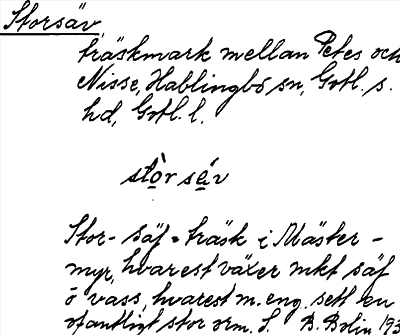 Storsäv,
träskmark mellan Petes och
Nisse, Hablingbo sn, Gotl. s.
hd, Gotl. l.
stòr sév
Stor-säf = träsk i Mäster-
myr, hvarest växer mkt säf
o vass, hvarest m. eng. sett en
ofantligt stor orm. S. B. Bolin 193